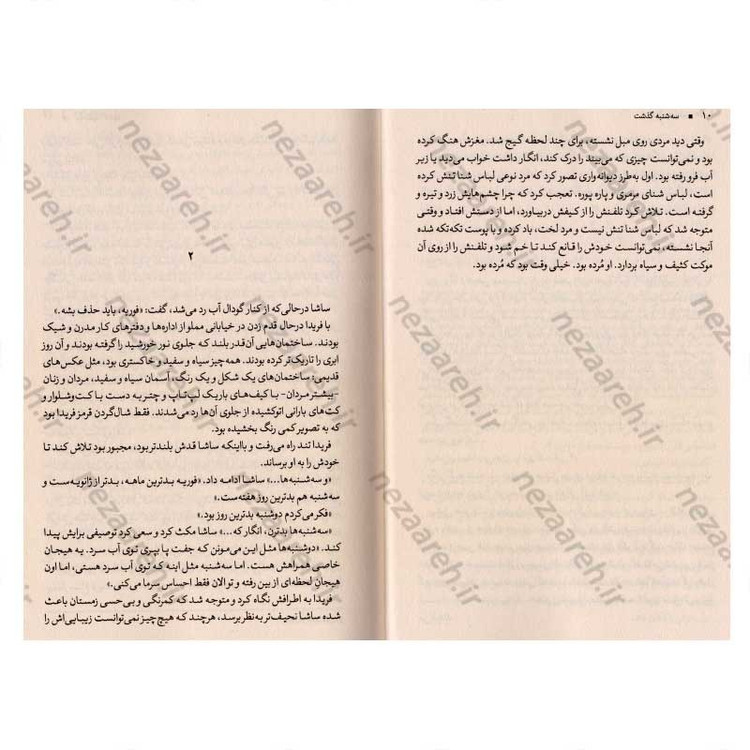 ۱۰ ■ سه‌شنبه گذشت
وقتی دید مردی روی مبل نشسته، برای چند لحظه گیج شد. مغزش هنگ کرده
بود و نمی‌توانست چیزی که می‌بیند را درک کند، انگار داشت خواب می‌دید یا زیر
آب فرو رفته بود. اول به‌طرز دیوانه‌واری تصور کرد که مرد نوعی لباس شنا تنش کرده
است، لباس شنای مرمری و پاره پوره. تعجب کرد که چرا چشم‌هایش زرد و تیره و
گرفته است. تلاش کرد تلفنش را از کیفش دربیاورد، اما از دستش افتاد و وقتی
متوجه شد که لباس شنا تنش نیست و مرد لخت، باد کرده و با پوست تکه‌تکه شده
آنجا نشسته، نمی‌توانست خودش را قانع کند تا خم شود و تلفنش را از روی آن
موکت کثیف و سیاه بردارد. او مُرده بود. خیلی وقت بود که مُرده بود.
۲
ساشا درحالی‌که از کنار گودال آب رد می‌شد، گفت: «فوریه، باید حذف بشه.»
با فریدا درحال قدم زدن در خیابانی مملو از اداره‌ها و دفترهای کار مدرن و شیک
بودند. ساختمان‌هایی آن‌قدر بلند که جلوی نور خورشید را گرفته بودند و آن روز
ابری را تاریک‌تر کرده بودند. همه‌چیز سیاه و سفید و خاکستری بود، مثل عکس‌های
قدیمی: ساختمان‌های یک شکل و یک رنگ، آسمان سیاه و سفید، مردان و زنان
-بیشتر مردان- با کیف‌های باریک لپ‌تاپ و چتر به دست با کت‌وشلوار و
کت‌های بارانی اتوکشیده از جلوی آن‌ها رد می‌شدند. فقط شال‌گردن قرمز فریدا بود
که به تصویر کمی رنگ بخشیده بود.
فریدا تند راه می‌رفت و بااینکه ساشا قدش بلندتر بود، مجبور بود تلاش کند تا
خودش را به او برساند.
«و سه‌شنبه‌ها...» ساشا ادامه داد. «فوریه بدترین ماهه، بدتر از ژانویه‌ست و
سه‌شنبه هم بدترین روز هفته‌ست.»
«فکر می‌کردم دوشنبه بدترین روز بود.»
«سه‌شنبه‌ها بدترن، انگار که...» ساشا مکث کرد و سعی کرد توصیفی برایش پیدا
کند. «دوشنبه‌ها مثل این می‌مونن که جفت پا بپری توی آب سرد. یه هیجان
خاصی همراهش هست. اما سه‌شنبه مثل اینه که توی آب سرد هستی، اما اون
هیجان لحظه‌ای از بین رفته و تو الان فقط احساس سرما می‌کنی.»
فریدا به اطرافش نگاه کرد و متوجه شد که کمرنگی و بی‌حسی زمستان باعث
شده ساشا نحیف‌تر به نظر برسد، هرچند که هیچ‌چیز نمی‌توانست زیبایی‌اش را
nezaareh.ir